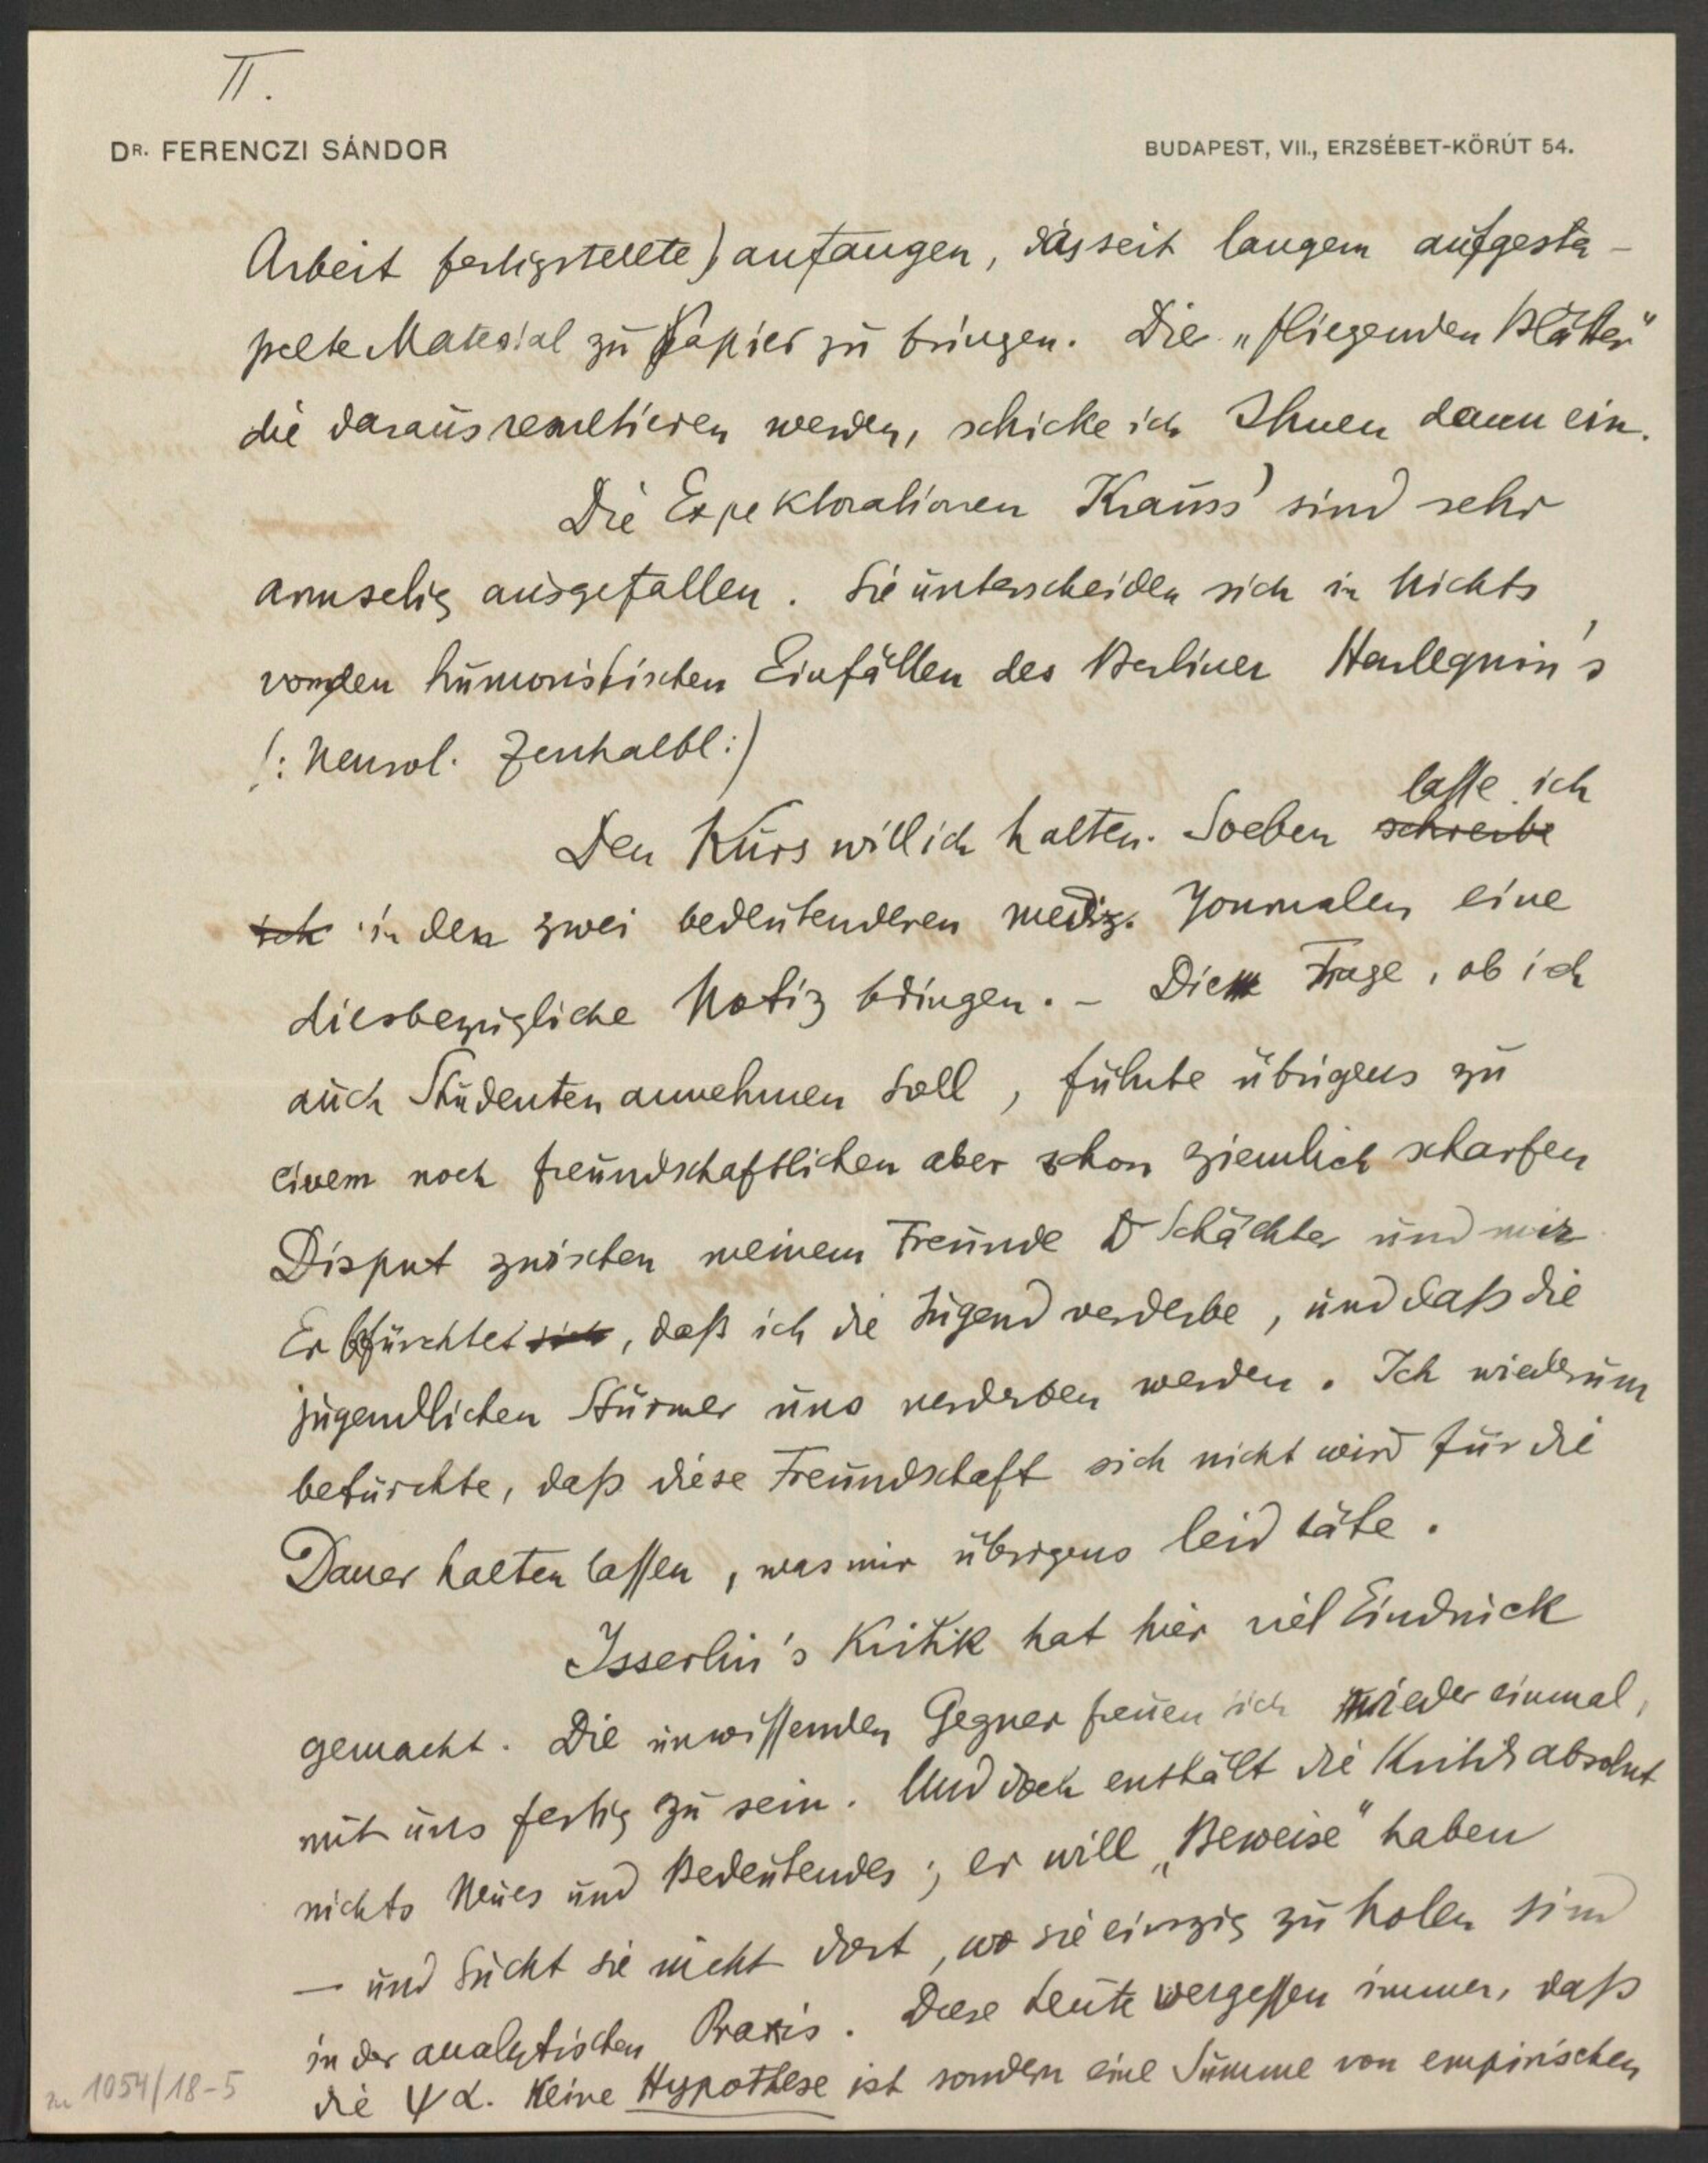 II.
DR. FERENCZI SÁNDOR
BUDAPEST, VII., ERZSÉBET-KÖRÚT 54.
Arbeit fertigstellte) anfangen, das seit langem aufgesta-
pelte Material zu Papier zu bringen. Die „fliegenden Blätter"
die daraus resultieren werden, schicke ich Ihnen dann ein.
Die Expektorationen Krauss' sind sehr
armselig ausgefallen. Sie unterscheiden sich in Nichts
von den humoristischen Einfällen des Berliner Harlequin's
(: Neurol. Zentralbl :)
Den Kurs will ich halten. Soeben schreibe lasse ich
ich in den zwei bedeutenderen mediz. Journalen eine
diesbezügliche Notiz bringen. – Die Frage, ob ich
auch Studenten annehmen soll, führte übrigens zu
einem noch freundschaftlichen aber schon ziemlich scharfen
Disput zwischen meinem Freunde Dr Schächter und mir
Er befürchtet sich, daß ich die Jugend verderbe, und daß die
jugendlichen Stürmer uns verderben werden. Ich wiederum
befürchte, daß diese Freundschaft sich nicht wird für die
Dauer halten lassen, was mir übrigens leid täte.
Isserlin's Kritik hat hier viel Eindruck
gemacht. Die unwissenden Gegner freuen sich wieder einmal,
mit uns fertig zu sein. Und doch enthält die Kritik absolut
nichts Neues und Bedeutendes; er will „Beweise" haben
— und sucht sie nicht dort, wo sie einzig zu holen sind
in der analytischen Praxis. Diese Leute vergessen immer, daß
die Ψα. keine Hypothese ist sondern eine Summe von empirischen
zu 1054/18-5